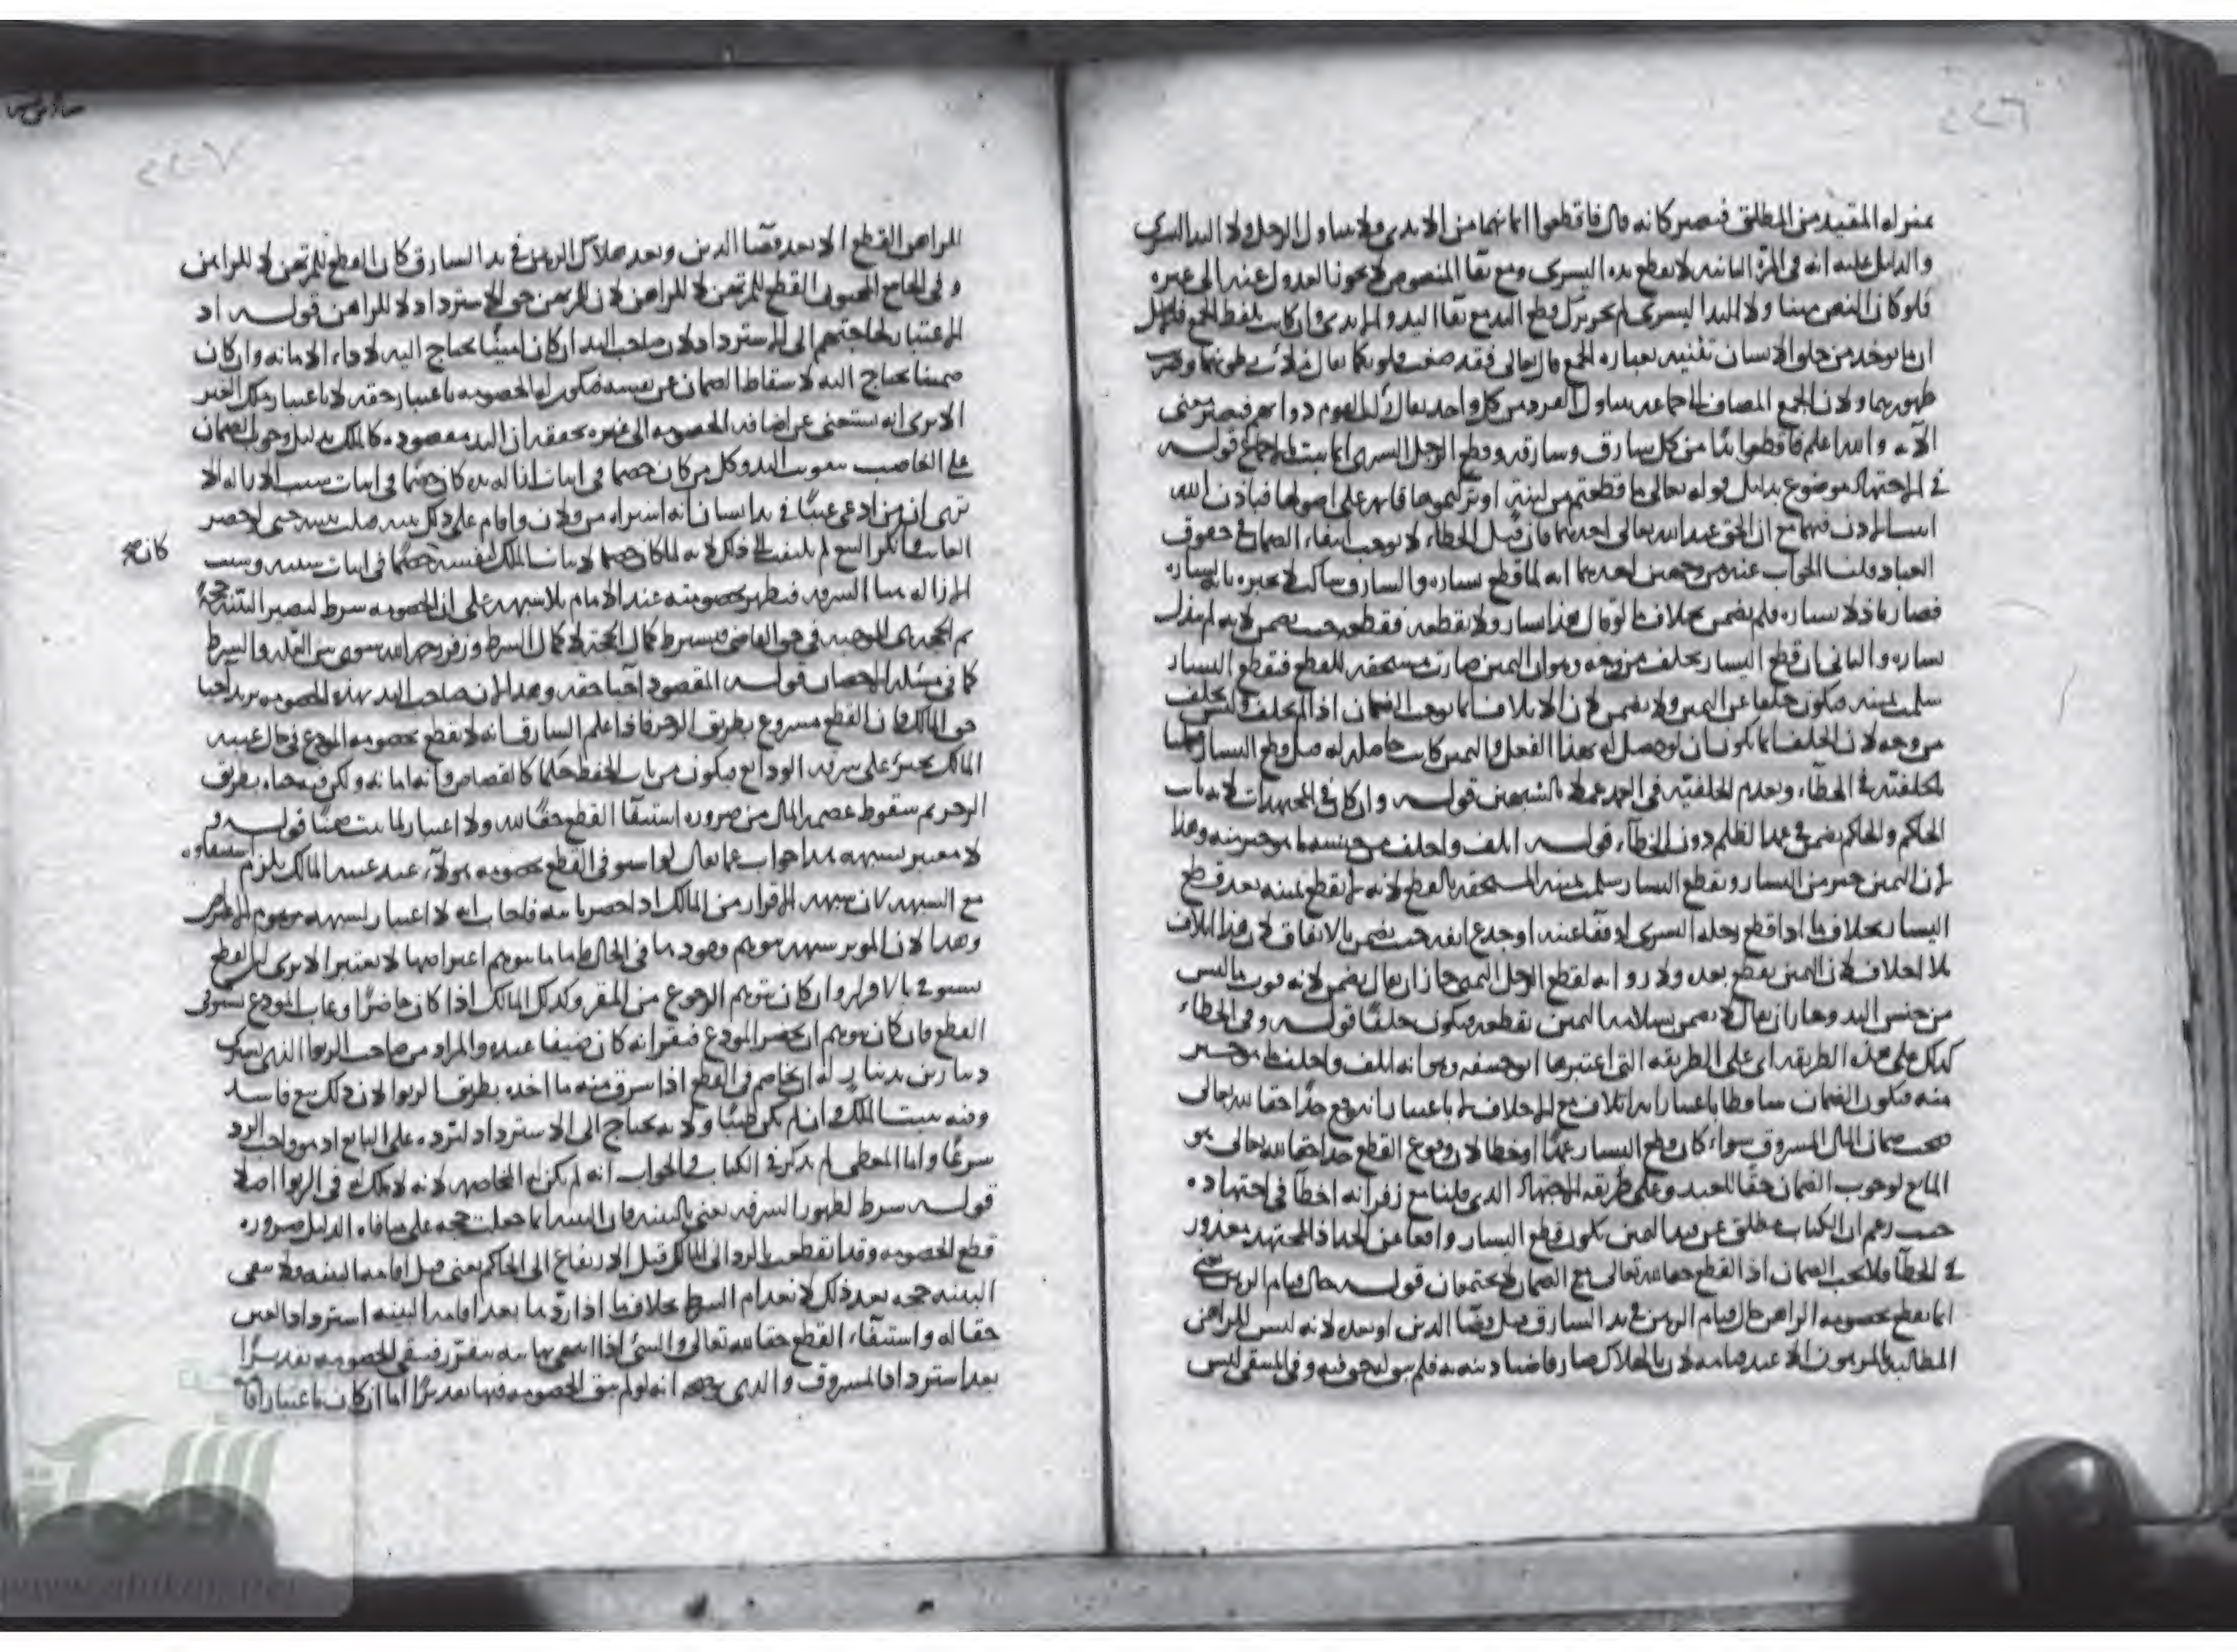 ٢٢٦
بمنزلة المقيد من المطلق فيصير كانه قال فاقطعوا ايمانهما من الايدي ولا يتناول الرجل ولا اليد اليسرى
والدليل عليه انه في المرة الثانية لا يقطع يده اليسرى ومع بقا المنصوص لا يجوز العدول عنه الى غيره
فلو كان النص متناولا لليد اليسرى لم يجز ترك قطع اليد مع بقا اليد والايدي وان كانت بلفظ الجمع
ان ما يوجد من خلق الانسان تثنيته بعبارة الجمع قال تعالى فقد صغت قلوبكما يقال ملات بطونهما وضربت
ظهورهما ولان الجمع المضاف الى جماعة يتناول الفرد من كل واحد يقال ركب القوم دوابهم فيصير معنى
الآية والله اعلم فاقطعوا يدا من كل سارق وسارقة وقطع الرجل اليسرى انما يثبت بالاجماع قوله
في الاجتهاد موضوع بدليل قوله تعالى ما قطعتم من لينة او تركتموها قائمة على اصولها فباذن الله
الحق عند الله تعالى احدهما فان قيل الخطاء لا يوجب انتفاء الضمان في حقوق
العباد قلنا الجواب عنه من وجهين احدهما انه لما قطع يساره والسارق ساكت لم يخبره بانه يساره
فصار باذلا يساره فلم يضمن بخلاف ما لو قال هذا يساري ولا تقطعه فقطعه حيث يضمن لانه لم يبذل
يساره والثاني ان قطع اليسار بخلف من وجه وهو ان اليمين صارت مستحقة للقطع فبقطع اليسار
سلمت يمينه فيكون خلفا عن اليمين ولا يضمن لان الاتلاف انما يوجب الضمان اذا لم يخلف
من وجه لان الخلف انما يكون ان لو حصل له بهذا الفعل واليمين كانت حاصلة له قبل قطع اليسار قلنا
بخلفيته في الخطاء وبعدم الخلفية في العمد عملا بالشبهين قوله وان كان في المجتهدات لانه
الحاكم والحاكم يضمن في عمد الظلم دون الخطاء قوله اتلف واخلف من جنسه ما هو خير منه وهذا
لان اليمين خير من اليسار وبقطع اليسار سلمت يمينه المستحقة بالقطع لانه لا يقطع يمينه بعد قطع
اليسار بخلاف ما اذا قطع رجله اليسرى او فقأ عينه او جدع انفه حيث يضمن بالاتفاق لان هذا اتلاف
بلا اخلاف لان اليمين يقطع بعده ولا رواية لقطع الرجل اليمنى جاز ان يقال يضمن لانه فوت ما ليس
من جنس اليد وجاز ان يقال لا يضمن بسلامة اليمين بقطعه فيكون خلفا قوله وفي الخطاء
كذلك على هذه الطريقة اي على الطريقة التي اعتبرها ابو حنيفة وهو انه اتلف واخلف خير
منه فيكون الضمان ساقطا باعتبار انه اتلاف مع الاخلاف لا باعتبار انه وقع حدا حقا لله تعالى
ضمان المال المسروق سواء كان قطع اليسار عمدا او خطا لان وقوع القطع حدا حقا لله تعالى هو
المانع لوجوب الضمان حقا للعبد وعلى طريقة الاجتهاد الذي قلنا مع زفر انه اخطا في اجتهاده
حيث زعم ان الكتاب مطلق عن قيد اليمين يكون قطع اليسار واقعا عن الحد اذ المجتهد معذور
في الخطا فلا يجب الضمان اذ القطع حقا لله تعالى مع الضمان لا يجتمعان قوله حال قيام الرهن يعني
انما يقطع بخصومة الراهن حال قيام الرهن في يد السارق قبل قضا الدين او بعده لانه ليس للراهن
المطالبة بالمرهون الا عند قيامه لان بالهلاك صار قاضيا دينه به فلم يبق له حق فيه وفي المنتقى ليس
٢٢٧
للراهن القطع الا بعد قضا الدين وبعد هلاك الرهن في يد السارق كان القطع للمرتهن لا للراهن
وفي الجامع المحبوبي القطع للمرتهن لا للراهن لان للمرتهن حق الاسترداد لا للراهن قوله اذ
الاعتبار لحاجتهم الى الاسترداد لان صاحب اليد ان كان امينا يحتاج اليه لاداء الامانة وان كان
ضمينا يحتاج اليه لاسقاط الضمان عن نفسه فيكون له الخصومة باعتبار حقه لا باعتبار ملك الغير
الا يرى انه يستغنى عن اضافة الخصومة الى غيره يحققه ان اليد مقصودة كالملك بدليل وجوب الضمان
على الغاصب بتفويت اليد وكل من كان خصما في اثبات ازالة يده كان خصما في اثبات سبب الازالة الا
ترى ان من ادعى عينا في يد انسان انه اشتراه من فلان واقام على ذلك بينة قبلت بينته حتى لو حضر
الغائب وانكر البيع لم يلتفت الى ذلك لانه لما كان خصما لاثبات الملك لنفسه خصما في اثبات سببه وسبب
كان صح
الازالة هنا السرقة فيظهر بخصومته عند الامام بلا شبهة على ان الخصومة شرط ليصير البينة حجة
كمال الحجة لا كمال الشرط وزفر رحمه الله سوى بين العلة والشرط
كما في مسئلة الاحصان قوله المقصود احيا حقه وهذا لان صاحب اليد بهذه الخصومة يريد احيا
حق المالك فان القطع مشروع بطريق الزجر فاذا علم السارق انه لا يقطع بخصومة المودع في حال غيبة
المالك يجترئ على سرقة الودايع فيكون من باب الحفظ حكما كالقصاص
الزجر ثم سقوط عصمة المال من ضرورة استيفا القطع حقا لله ولا اعتبار لما يثبت ضمنا قوله و
لا معتبر بشبهة هذا جواب عما يقال لو استوفى القطع بخصومة هولاء عند غيبة المالك يلزم استيفاؤه
مع الشبهة لان شبهة الاقرار من المالك اذا حضر ثابتة فاجاب انه لا اعتبار لشبهة موهوم الاعتراض
وهذا لان الموثر شبهة موهم وجودها في الحال فاما ما يتوهم اعتراضها لا يعتبر الا يرى ان القطع
يستوفى بالاقرار وان كان يتوهم الرجوع من المقر وكذلك المالك اذا كان حاضرا وغاب المودع يستوفى
القطع وان كان يتوهم ان يحضر المودع فيقر انه كان ضيفا عنده والمراد من صاحب الربوا الذي
دينارين بدينار له ان يخاصم في القطع اذا سرق منه ما اخذه بطريق الربوا لان ذلك بيع فاسد
وفيه يثبت الملك وان لم يكن طيبا ولانه يحتاج الى الاسترداد لترده على البايع اذ هو واجب الرد
شرعا واما المعطي لم يذكر في الكتاب والجواب انه لم يكن له المخاصمة لانه لا ملك له في الربوا اصلا
قوله شرط لظهور السرقة يعني بالبينة فان البينة انما جعلت حجة على منافاة الدليل ضرورة
قطع الخصومة وقد انقطعت بالرد الى المالك قبل الارتفاع الى الحاكم يعني قبل اقامة البينة ولا يبقى
البينة حجة بعد ذلك لانعدام الشرط بخلاف ما اذا رد ما بعد اقامة البينة استرداد العين
حقا له واستيفاء القطع حقا لله تعالى والشئ اذا انتهى نهايته يتقرر فيبقى الخصومة تقديرا
بعد استرداد المسروق والذي يوضحه انه لو لم يبق الخصومة فيها تقديرا اما ان كان باعتبار